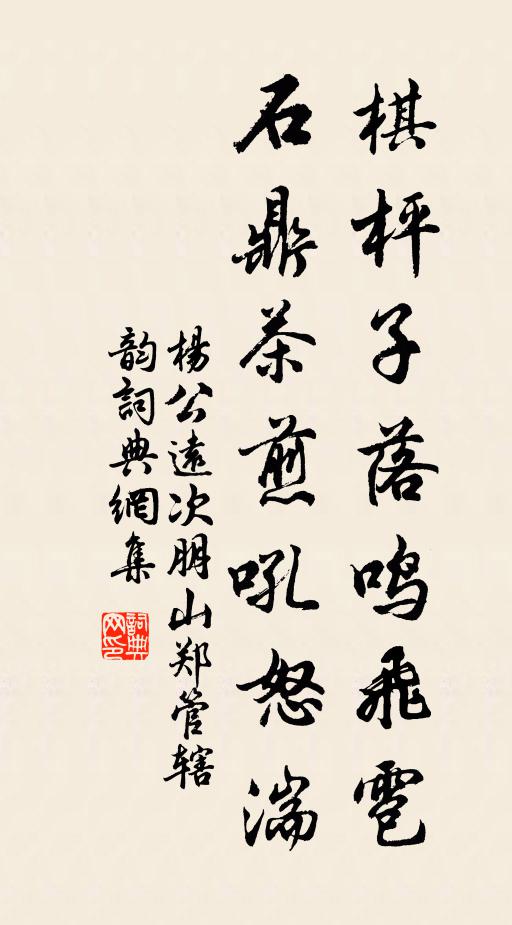 棋枰子落鸣飞雹
石鼎茶煎吼怒湍
楊公遠次朋山郑管辖
韵詞典網集
詞典
网印